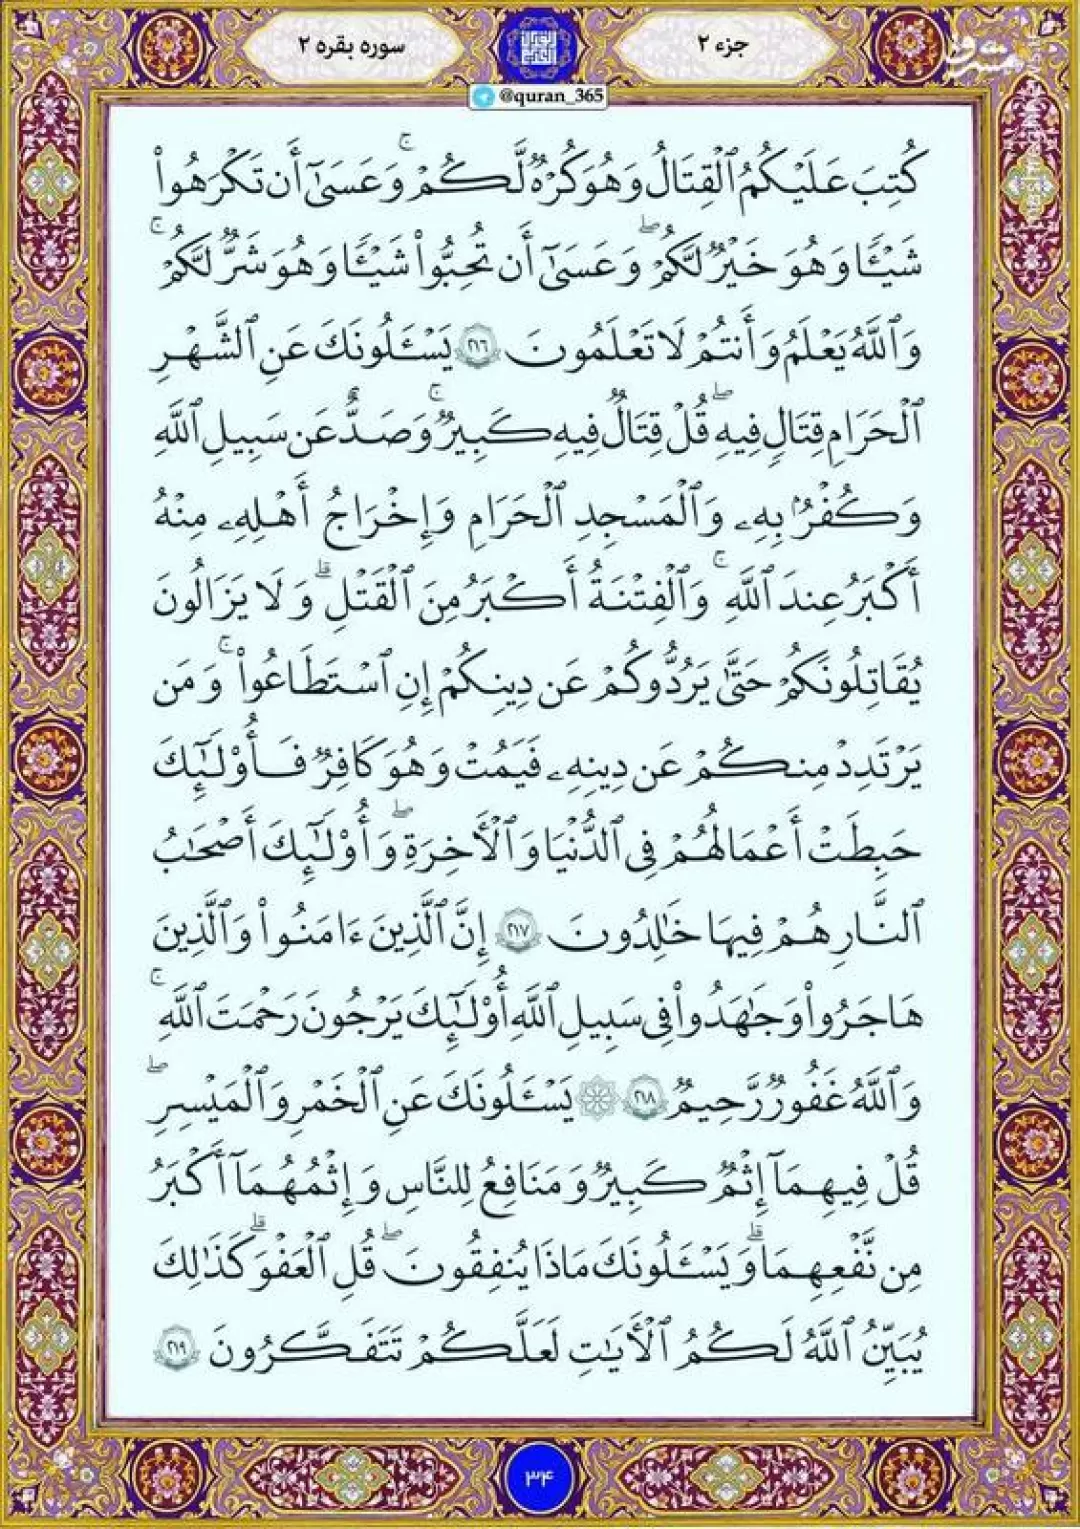 جزء ۲
سوره بقره ۲
@quran_365
كُتِبَ عَلَيْكُمُ ٱلْقِتَالُ وَهُوَ كُرْهٌ لَّكُمْ ۚ وَعَسَىٰٓ أَن تَكْرَهُوا۟
شَيْـًٔا وَهُوَ خَيْرٌ لَّكُمْ ۖ وَعَسَىٰٓ أَن تُحِبُّوا۟ شَيْـًٔا وَهُوَ شَرٌّ لَّكُمْ ۚ
وَٱللَّهُ يَعْلَمُ وَأَنتُمْ لَا تَعْلَمُونَ ۲۱۶ يَسْـَٔلُونَكَ عَنِ ٱلشَّهْرِ
ٱلْحَرَامِ قِتَالٍ فِيهِ ۖ قُلْ قِتَالٌ فِيهِ كَبِيرٌ ۚ وَصَدٌّ عَن سَبِيلِ ٱللَّهِ
وَكُفْرٌۢ بِهِۦ وَٱلْمَسْجِدِ ٱلْحَرَامِ وَإِخْرَاجُ أَهْلِهِۦ مِنْهُ
أَكْبَرُ عِندَ ٱللَّهِ ۚ وَٱلْفِتْنَةُ أَكْبَرُ مِنَ ٱلْقَتْلِ ۗ وَلَا يَزَالُونَ
يُقَاتِلُونَكُمْ حَتَّىٰ يَرُدُّوكُمْ عَن دِينِكُمْ إِنِ ٱسْتَطَاعُوا۟ ۚ وَمَن
يَرْتَدِدْ مِنكُمْ عَن دِينِهِۦ فَيَمُتْ وَهُوَ كَافِرٌ فَأُو۟لَـٰٓئِكَ
حَبِطَتْ أَعْمَالُهُمْ فِى ٱلدُّنْيَا وَٱلْأَخِرَةِ ۖ وَأُو۟لَـٰٓئِكَ أَصْحَـٰبُ
ٱلنَّارِ هُمْ فِيهَا خَـٰلِدُونَ ۲۱۷ إِنَّ ٱلَّذِينَ ءَامَنُوا۟ وَٱلَّذِينَ
هَاجَرُوا۟ وَجَـٰهَدُوا۟ فِى سَبِيلِ ٱللَّهِ أُو۟لَـٰٓئِكَ يَرْجُونَ رَحْمَتَ ٱللَّهِ ۚ
وَٱللَّهُ غَفُورٌ رَّحِيمٌ ۲۱۸ ۞ يَسْـَٔلُونَكَ عَنِ ٱلْخَمْرِ وَٱلْمَيْسِرِ ۖ
قُلْ فِيهِمَآ إِثْمٌ كَبِيرٌ وَمَنَافِعُ لِلنَّاسِ وَإِثْمُهُمَآ أَكْبَرُ
مِن نَّفْعِهِمَا ۗ وَيَسْـَٔلُونَكَ مَاذَا يُنفِقُونَ ۖ قُلِ ٱلْعَفْوَ ۗ كَذَٰلِكَ
يُبَيِّنُ ٱللَّهُ لَكُمُ ٱلْأَيَـٰتِ لَعَلَّكُمْ تَتَفَكَّرُونَ ۲۱۹
۳۴